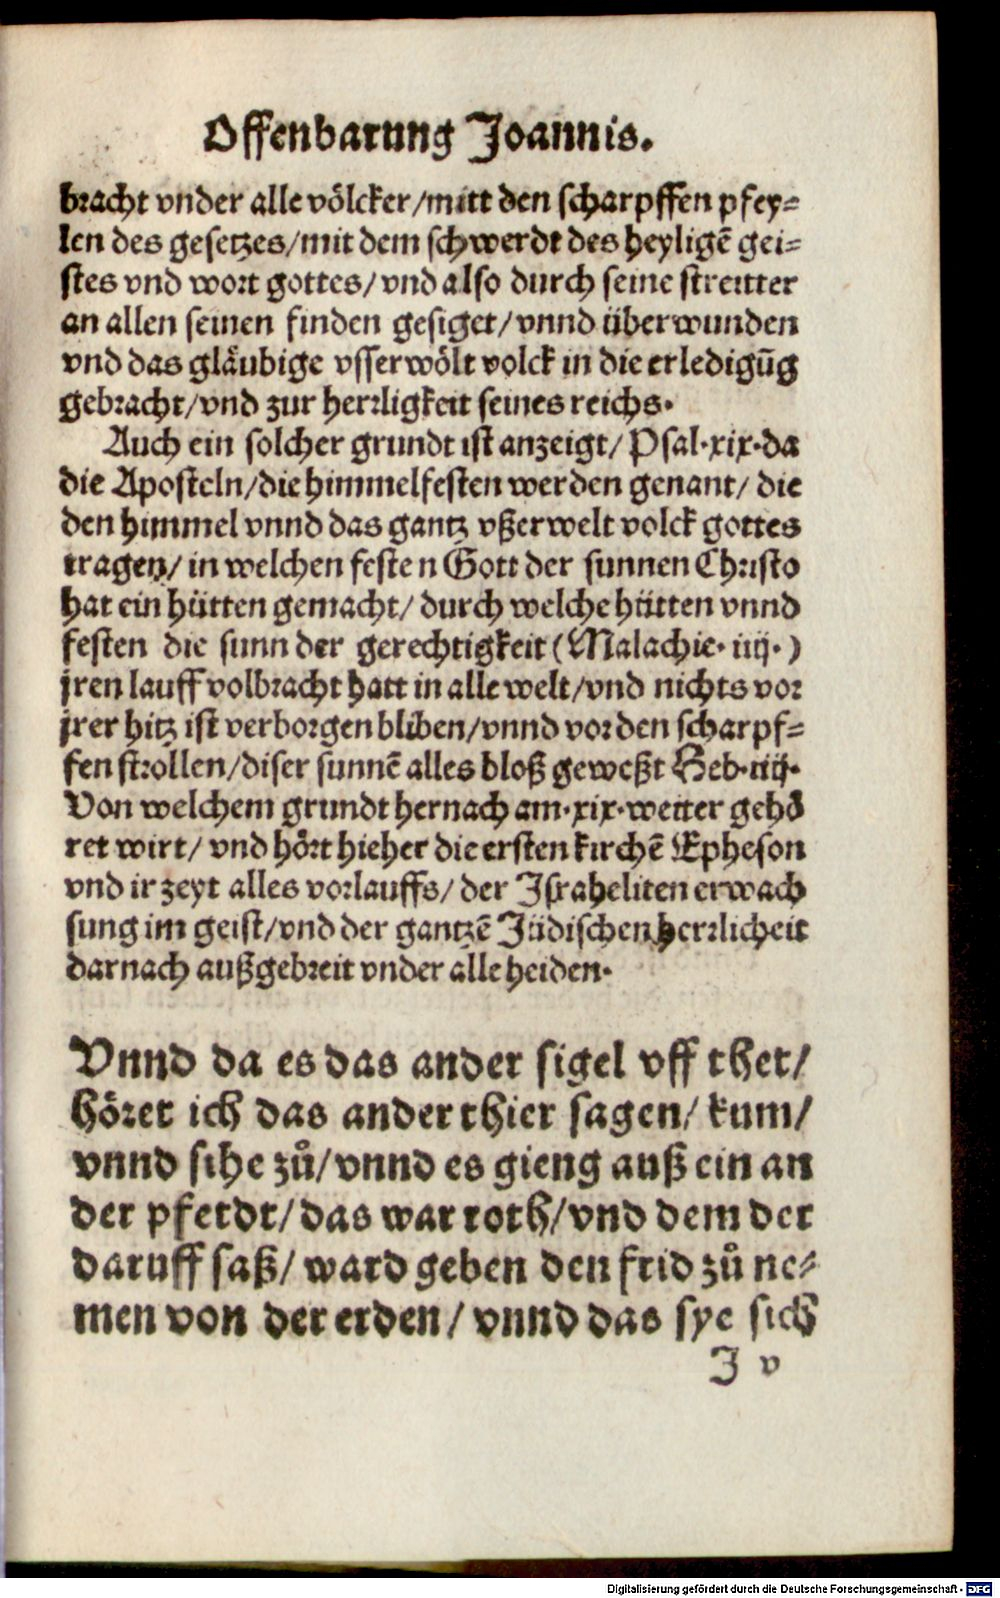 Offenbarung Joannis.
bracht vnder alle völcker/mitt den scharpffen pfey-
len des gesetzes/mit dem schwerdt des heyligē gei-
stes vnd wort gottes/vnd also durch seine streitter
an allen seinen finden gesiget/vnnd überwunden
vnd das gläubige vsserwölt volck in die erledigūg
gebracht/vnd zur herrligkeit seines reichs.
Auch ein solcher grundt ist anzeigt/Psal.xix.da
die Aposteln/die himmelfesten werden genant/die
den himmel vnnd das gantz vßerwelt volck gottes
tragen/in welchen festen Gott der sunnen Christo
hat ein hütten gemacht/durch welche hütten vnnd
festen die sunn der gerechtigkeit (Malachie.iiij.)
jren lauff volbracht hatt in alle welt/vnd nichts vor
jrer hitz ist verborgen bliben/vnnd vor den scharpf-
fen strollen/diser sunnē alles bloß geweßt Heb.iiij.
Von welchem grundt hernach am.xix.weiter gehö
ret wirt/vnd hört hieher die ersten kirchē Epheson
vnd ir zeyt alles vorlauffs/der Israheliten erwach
sung im geist/vnd der gantzē Jüdischen herrlicheit
darnach außgebreit vnder alle heiden.
Vnnd da es das ander sigel vff thet/
höret ich das ander thier sagen/kum/
vnnd sihe zů/vnnd es gieng auß ein an
der pferdt/das war roth/vnd dem der
daruff saß/ward geben den frid zů ne-
men von der erden/vnnd das sye sich
J v
Digitalisierung gefördert durch die Deutsche Forschungsgemeinschaft - DFG